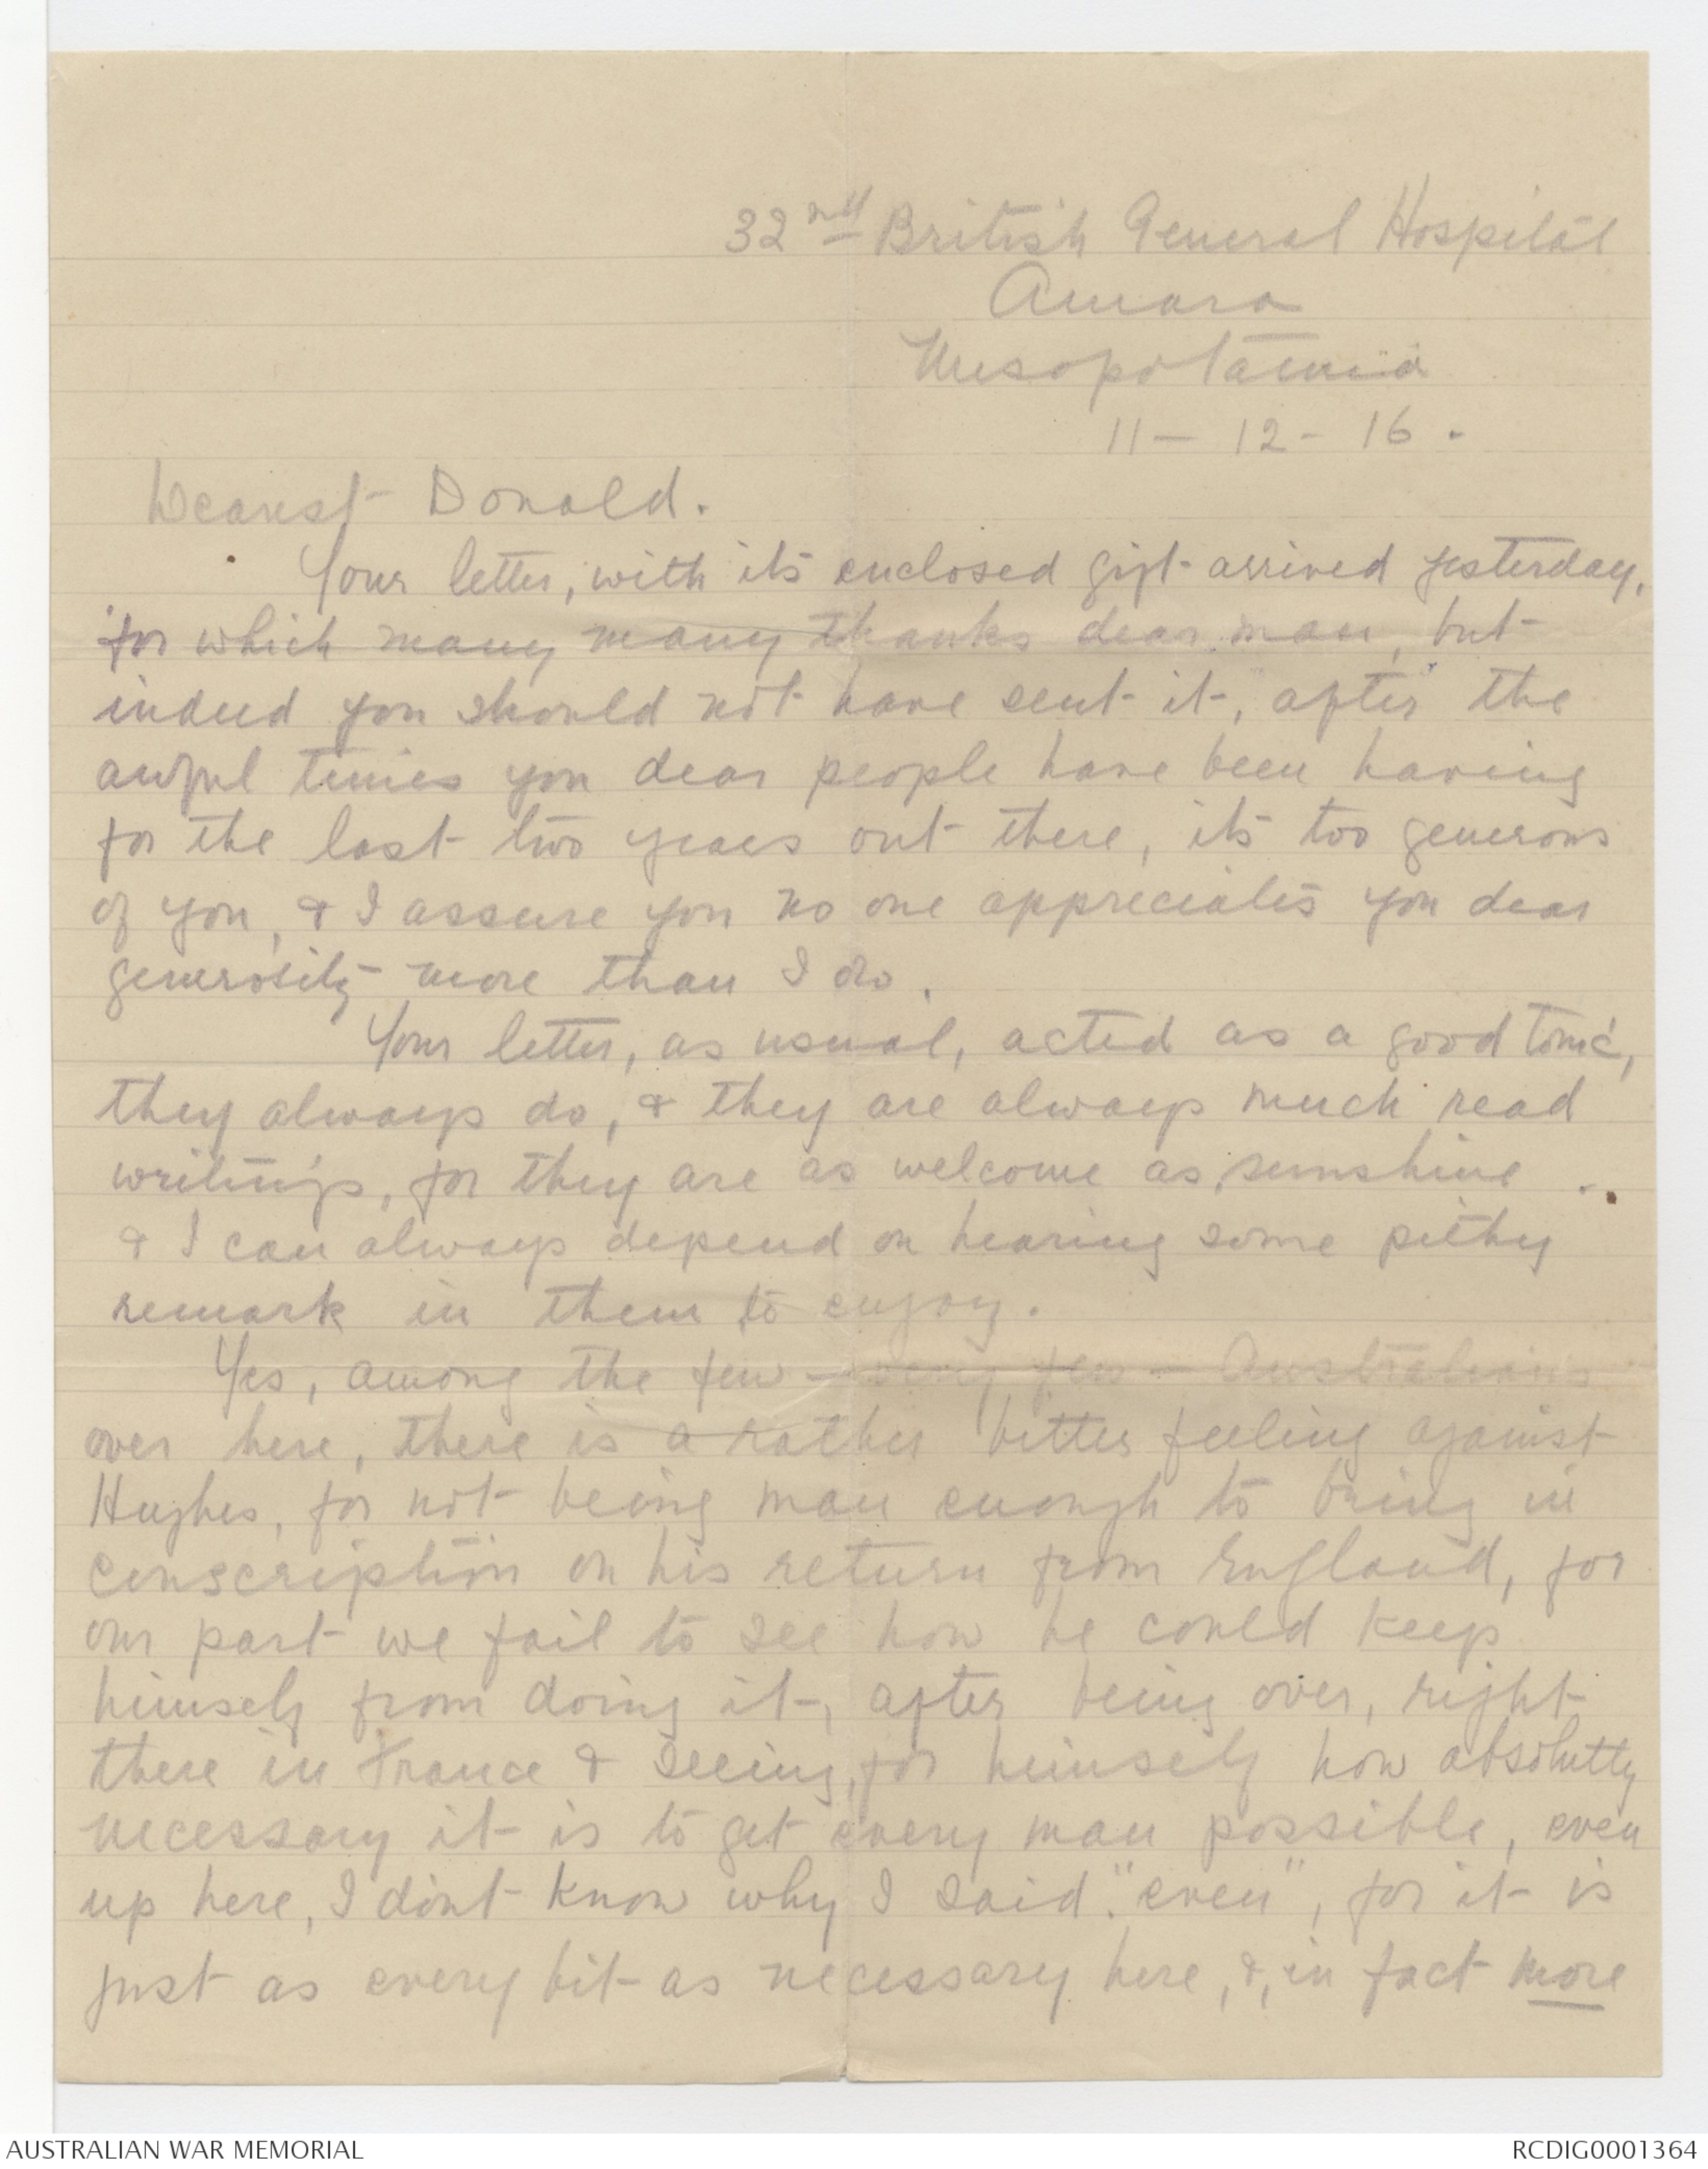 32nd British General Hospital
Amara
Mesopotamia
11 - 12 - 16 .
Dearest Donald.
Your letter, with its enclosed gift arrived yesterday,
for which many many thanks dear man, but
indeed you should not have sent it, after the
awful times you dear people have been having
for the last two years out there, its too generous
of you, & I assure you no one appreciates you dear
generosity more than I do.
Your letter, as usual, acted as a good tonic,
they always do, & they are always much read
writings, for they are as welcome as sunshine .
& I can always depend on hearing some pithy
remark in them to enjoy.
Yes, among the few - very few - Australians
over here, there is a rather bitter feeling against
Hughes, for not being man enough to bring in
conscription on his return from England, for
our part we fail to see how he could keep
himself from doing it, after being over, right
there in France & seeing, for himself how absolutty
necessary it is to get every man possible, even
up here, I dont know why I said "even", for it is
just as every bit as necessary here, &, in fact more
AUSTRALIAN WAR MEMORIAL
RCDIG0001364